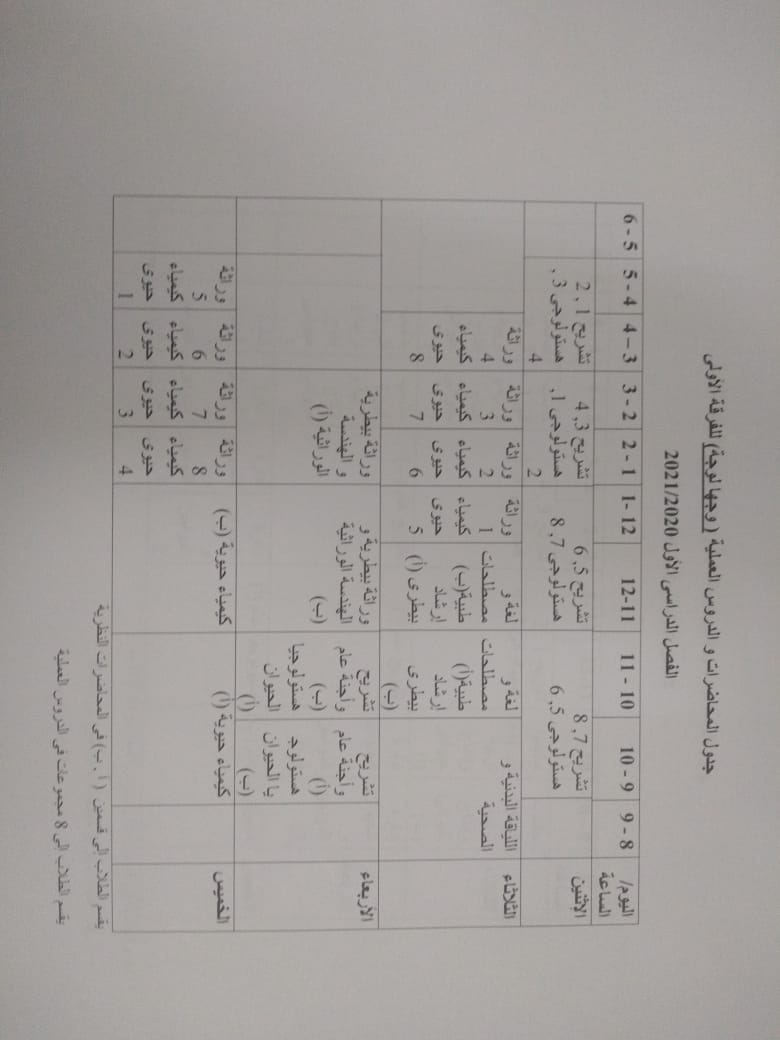 جدول المحاضرات و الدروس العملية ( وجها لوجة) للفرقة الأولى
الفصل الدراسى الأول 2021/2020
اليوم/ الساعة
9 - 8
10 - 9
11 - 10
12-11
1- 12
2 - 1
3 - 2
4 – 3
5 - 4
6 - 5
الإثنين
تشريح 8,7
هستولوجى 6,5
تشريح 6,5
هستولوجى 8,7
تشريح 4,3
هستولوجى 1,
2
تشريح 2,1
هستولوجى 3,
4
الثلاثاء
اللياقة البدنية و
الصحية
لغة و
مصطلحات
طبية(أ)
إرشاد
بيطرى
(ب)
لغة و
مصطلحات
طبية(ب)
إرشاد
بيطرى (أ)
وراثة
1
كيمياء
حيوى
5
وراثة
2
كيمياء
حيوى
6
وراثة
3
كيمياء
حيوى
7
وراثة
4
كيمياء
حيوى
8
الأربعاء
تشريح
وأجنة عام
(أ)
هستولوج
يا الحيوان
(ب)
تشريح
وأجنة عام
(ب)
هستولوجيا
الحيوان
(أ)
وراثة بيطرية و
الهندسة الوراثية
(ب)
وراثة بيطرية
و الهندسة
الوراثية (أ)
الخميس
كيمياء حيوية (أ)
كيمياء حيوية (ب)
وراثة
8
كيمياء
حيوى
4
وراثة
7
كيمياء
حيوى
3
وراثة
6
كيمياء
حيوى
2
وراثة
5
كيمياء
حيوى
1
يقسم الطلاب إلى قسمين ( أ , ب) فى المحاضرات النظرية
يقسم الطلاب إلى 8 مجموعات فى الدروس العملية